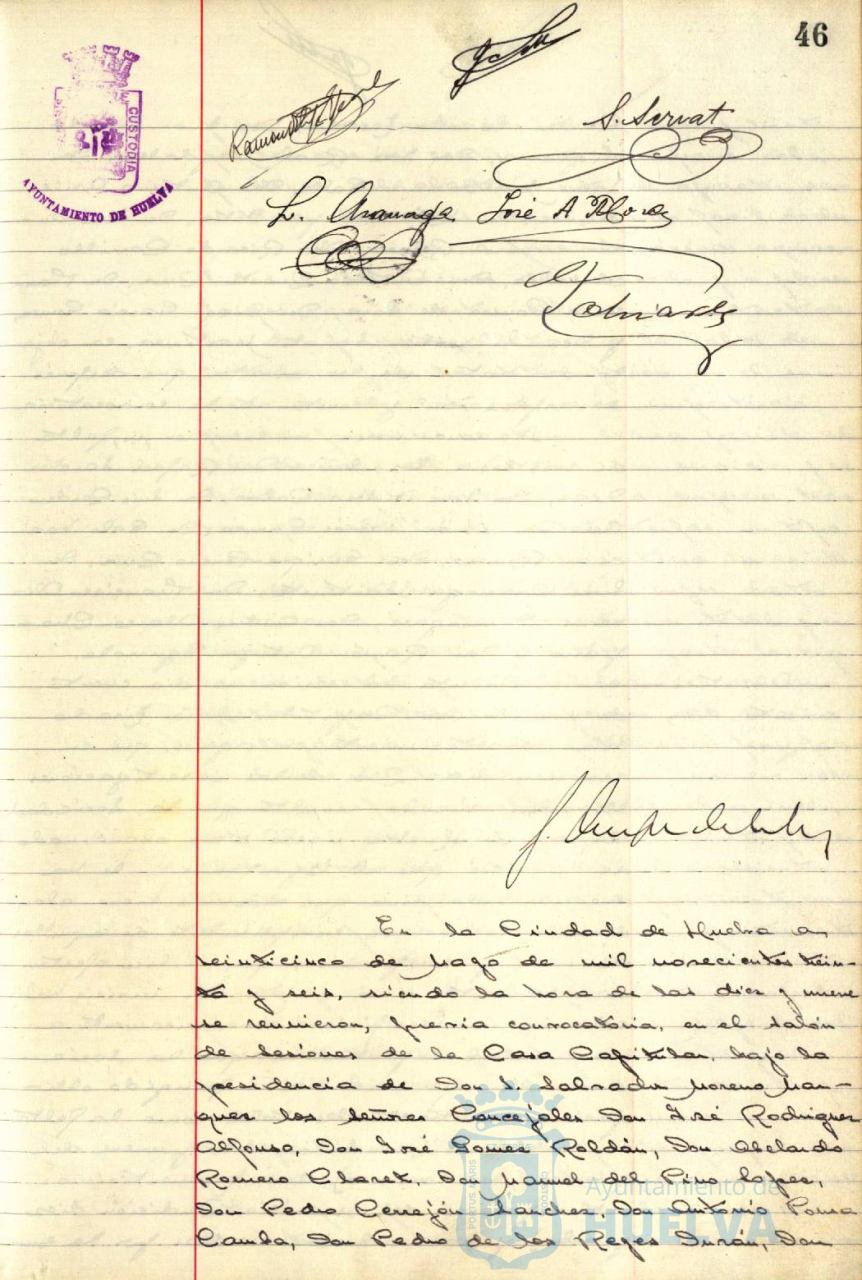 46
CUSTODIA
AYUNTAMIENTO DE HUELVA
S. Servat
José A
En la Ciudad de Huelva a
veinticinco de Mayo de mil novecientos trein-
ta y seis, siendo la hora de las diez y nueve
se reunieron, previa convocatoria, en el salón
de sesiones de la Casa Capitular, bajo la
presidencia de Don Salvador Moreno Mar-
quez los Señores Concejales Don José Rodriguez
Alfonso, Don José Gomez Roldán, Don Abelardo
Romero Claret, Don Manuel del Pino Lopez,
Don Pedro Cerrejón Sanchez, Don Antonio Pousa
Camba, Don Pedro de los Reyes Durán, Don
Ayuntamiento de
HUELVA